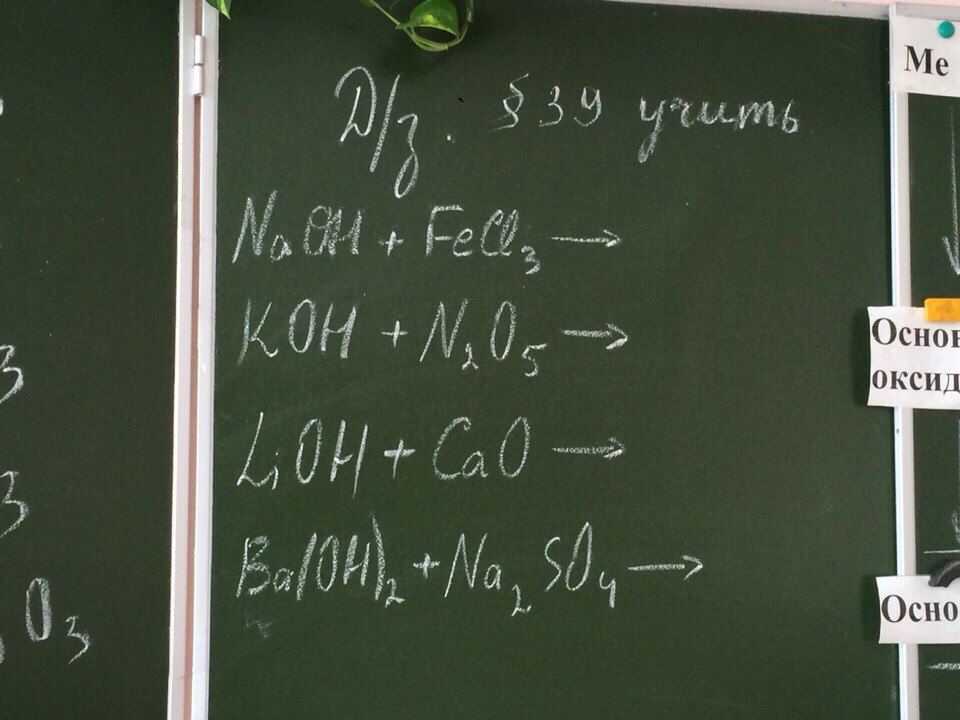 Д/з. § 39 учить
NaOH + FeCl₃ →
KOH + N₂O₅ →
LiOH + CaO →
Ba(OH)₂ + Na₂SO₄ →
3
3
O₃
Ме
Основ
оксид
Осно